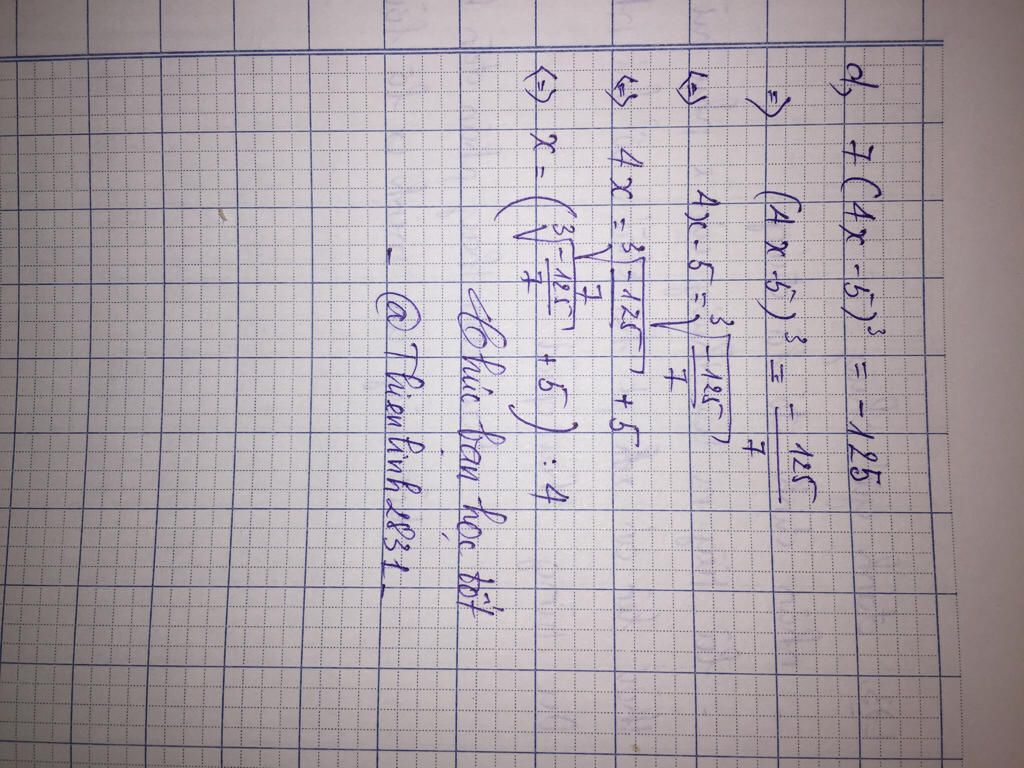 d, 7(4x - 5)³ = -125
=) (4x - 5)³ = -125/7
(=) 4x - 5 = ³√(-125/7)
(=) 4x = ³√(-125/7) + 5
(=) x = (³√(-125/7) + 5) : 4
Chúc bạn học tốt
- @Thienlinh2831 -